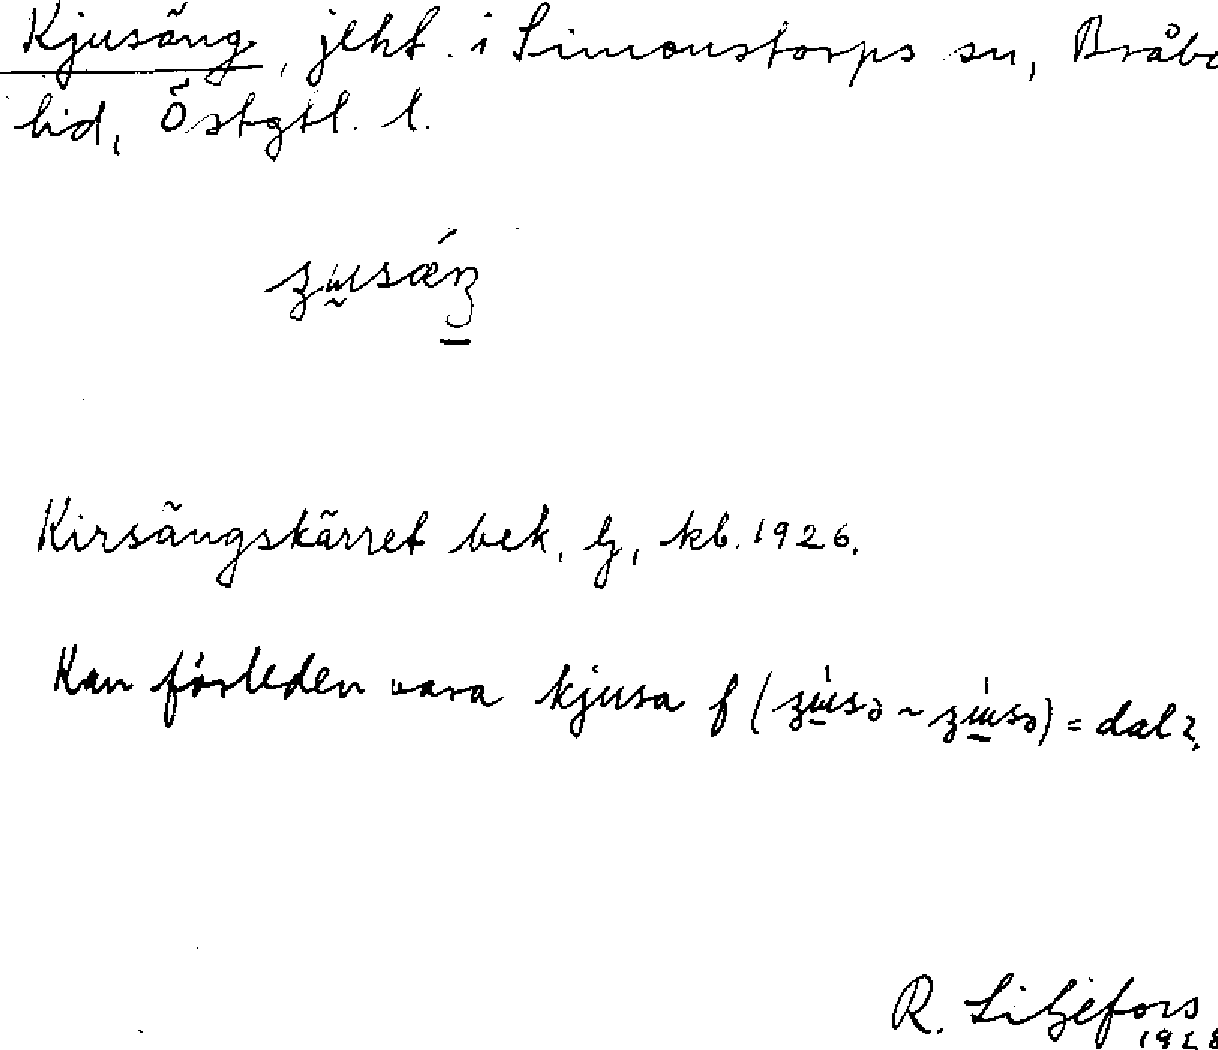 Kjusäng, jkht. i Simonstorps sn, Bråbo
hd, Östgtl. l.
Kirsängskärret bek. hg, kb. 1926.
Kan förleden vara kjusa f ( ~ ) = dal?
R. Liljefors
1928